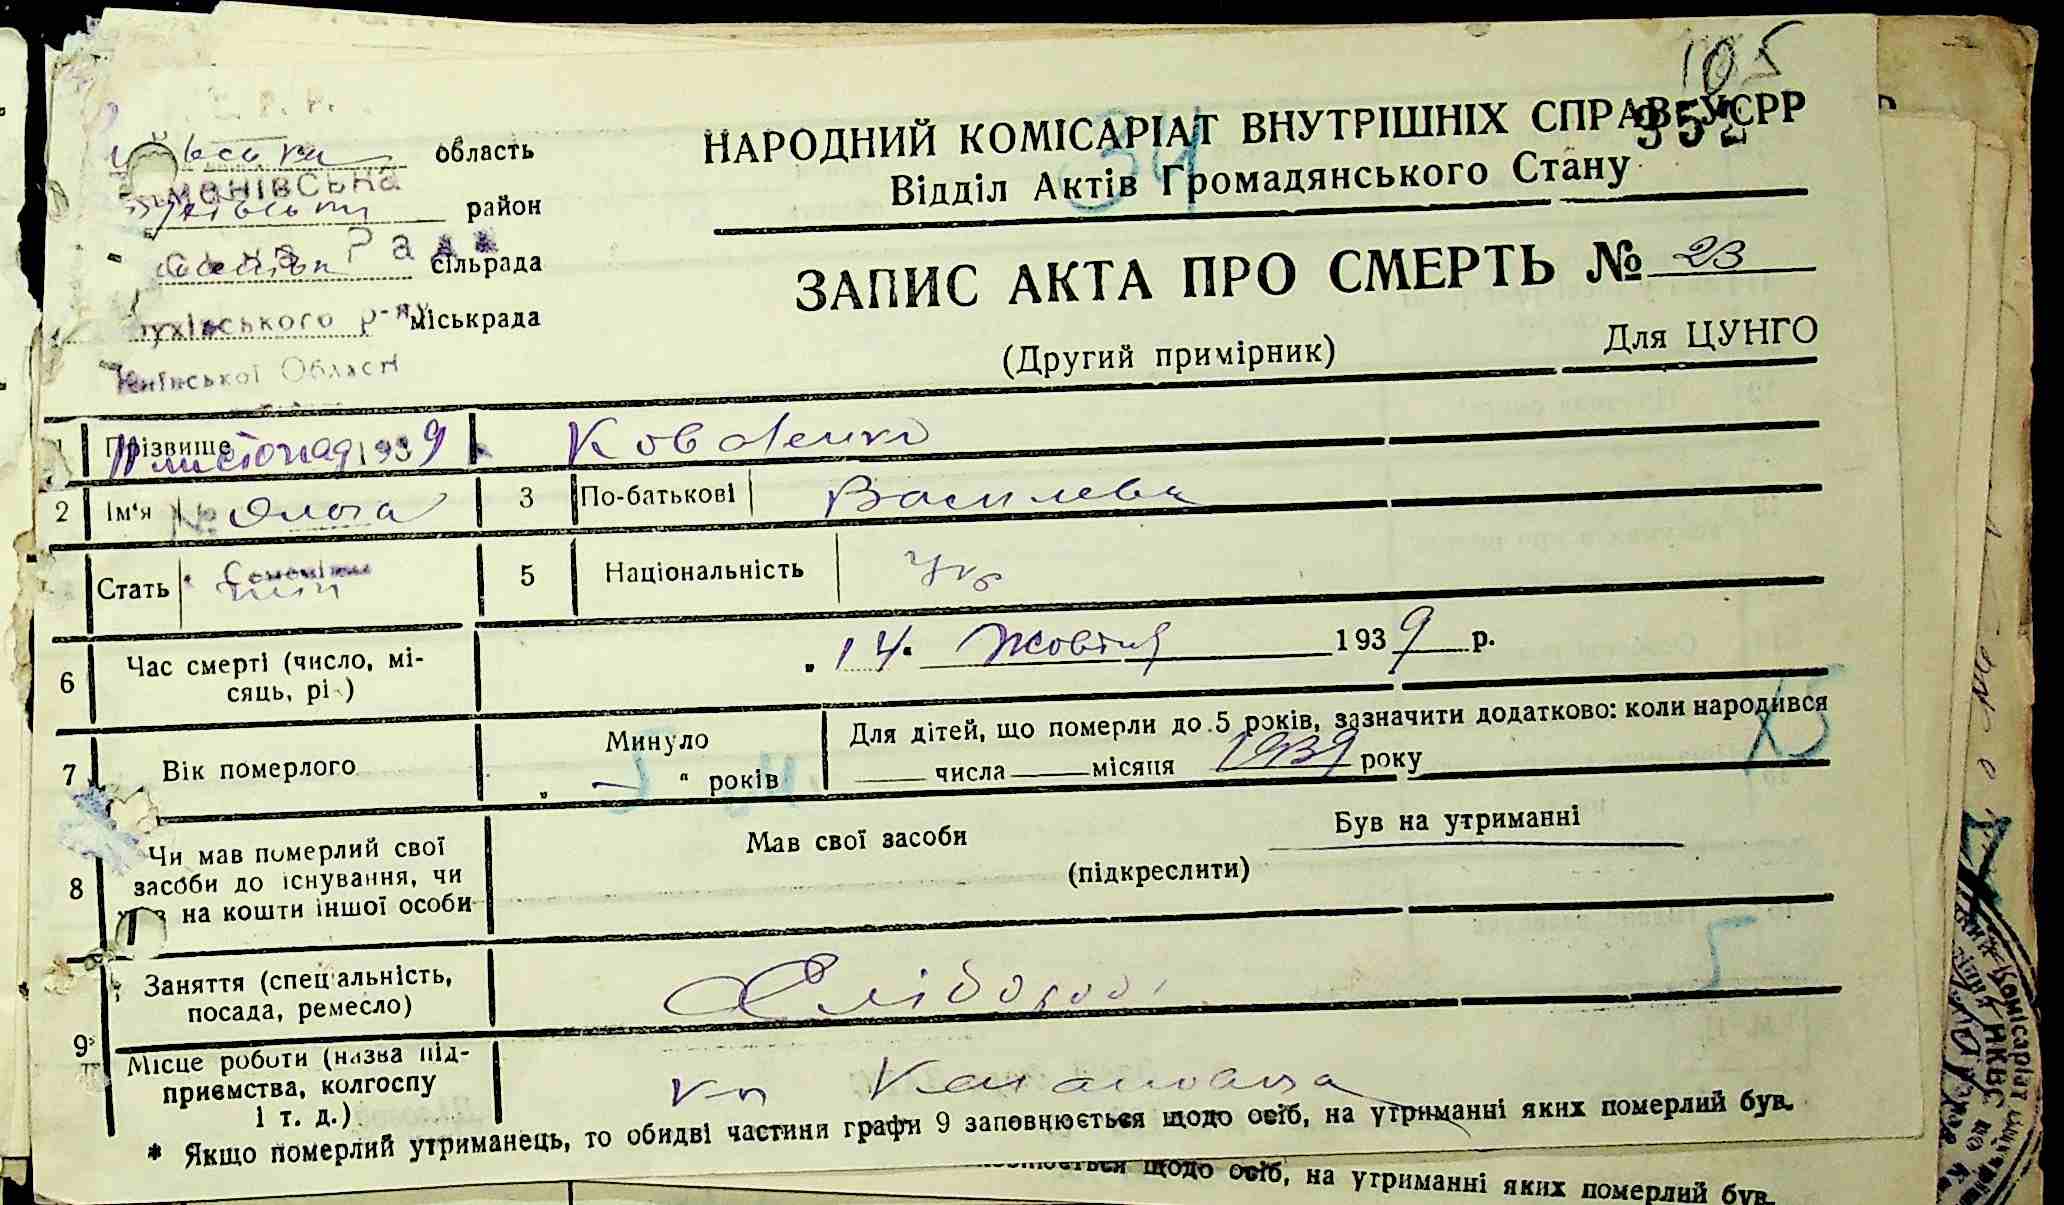 105
352
34
область
МАНІВСЬКА
район
Рада
сільрада
міськрада
Київської Області
НАРОДНИЙ КОМІСАРІАТ ВНУТРІШНІХ СПРАВ УСРР
Відділ Актів Громадянського Стану
ЗАПИС АКТА ПРО СМЕРТЬ № 23
(Другий примірник)
Для ЦУНГО
1 Прізвище Коваленко
11 листопад 1939
2 Ім'я Ольга 3 По-батькові Василева
Стать 5 Національність Укр
6 Час смерті (число, місяць, рік) „14" Жовтня 1939 р.
7 Вік померлого Минуло „ — " років
Для дітей, що померли до 5 років, зазначити додатково: коли народився
числа місяця 1939 року
8 Чи мав померлий свої засоби до існування, чи на кошти іншої особи
Мав свої засоби Був на утриманні
(підкреслити)
9 Заняття (спеціальність, посада, ремесло) Хлібороб
Місце роботи (назва підприємства, колгоспу і т. д.)
* Якщо померлий утриманець, то обидві частини графи 9 заповнюється щодо осіб, на утриманні яких померлий був.
щодо осіб, на утриманні яких померлий був.